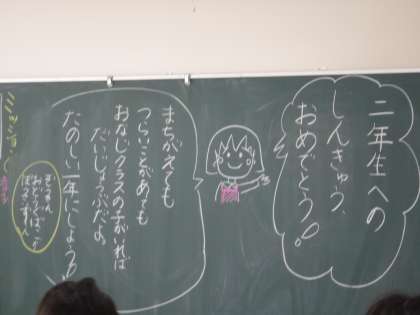 二年生への
しんきゅう、
おめでとう！
まちがえても
つらいことがあっても
おなじクラスの子がいれば
だいじょうぶだよ。
たのしい一年にしよう！
ミッション